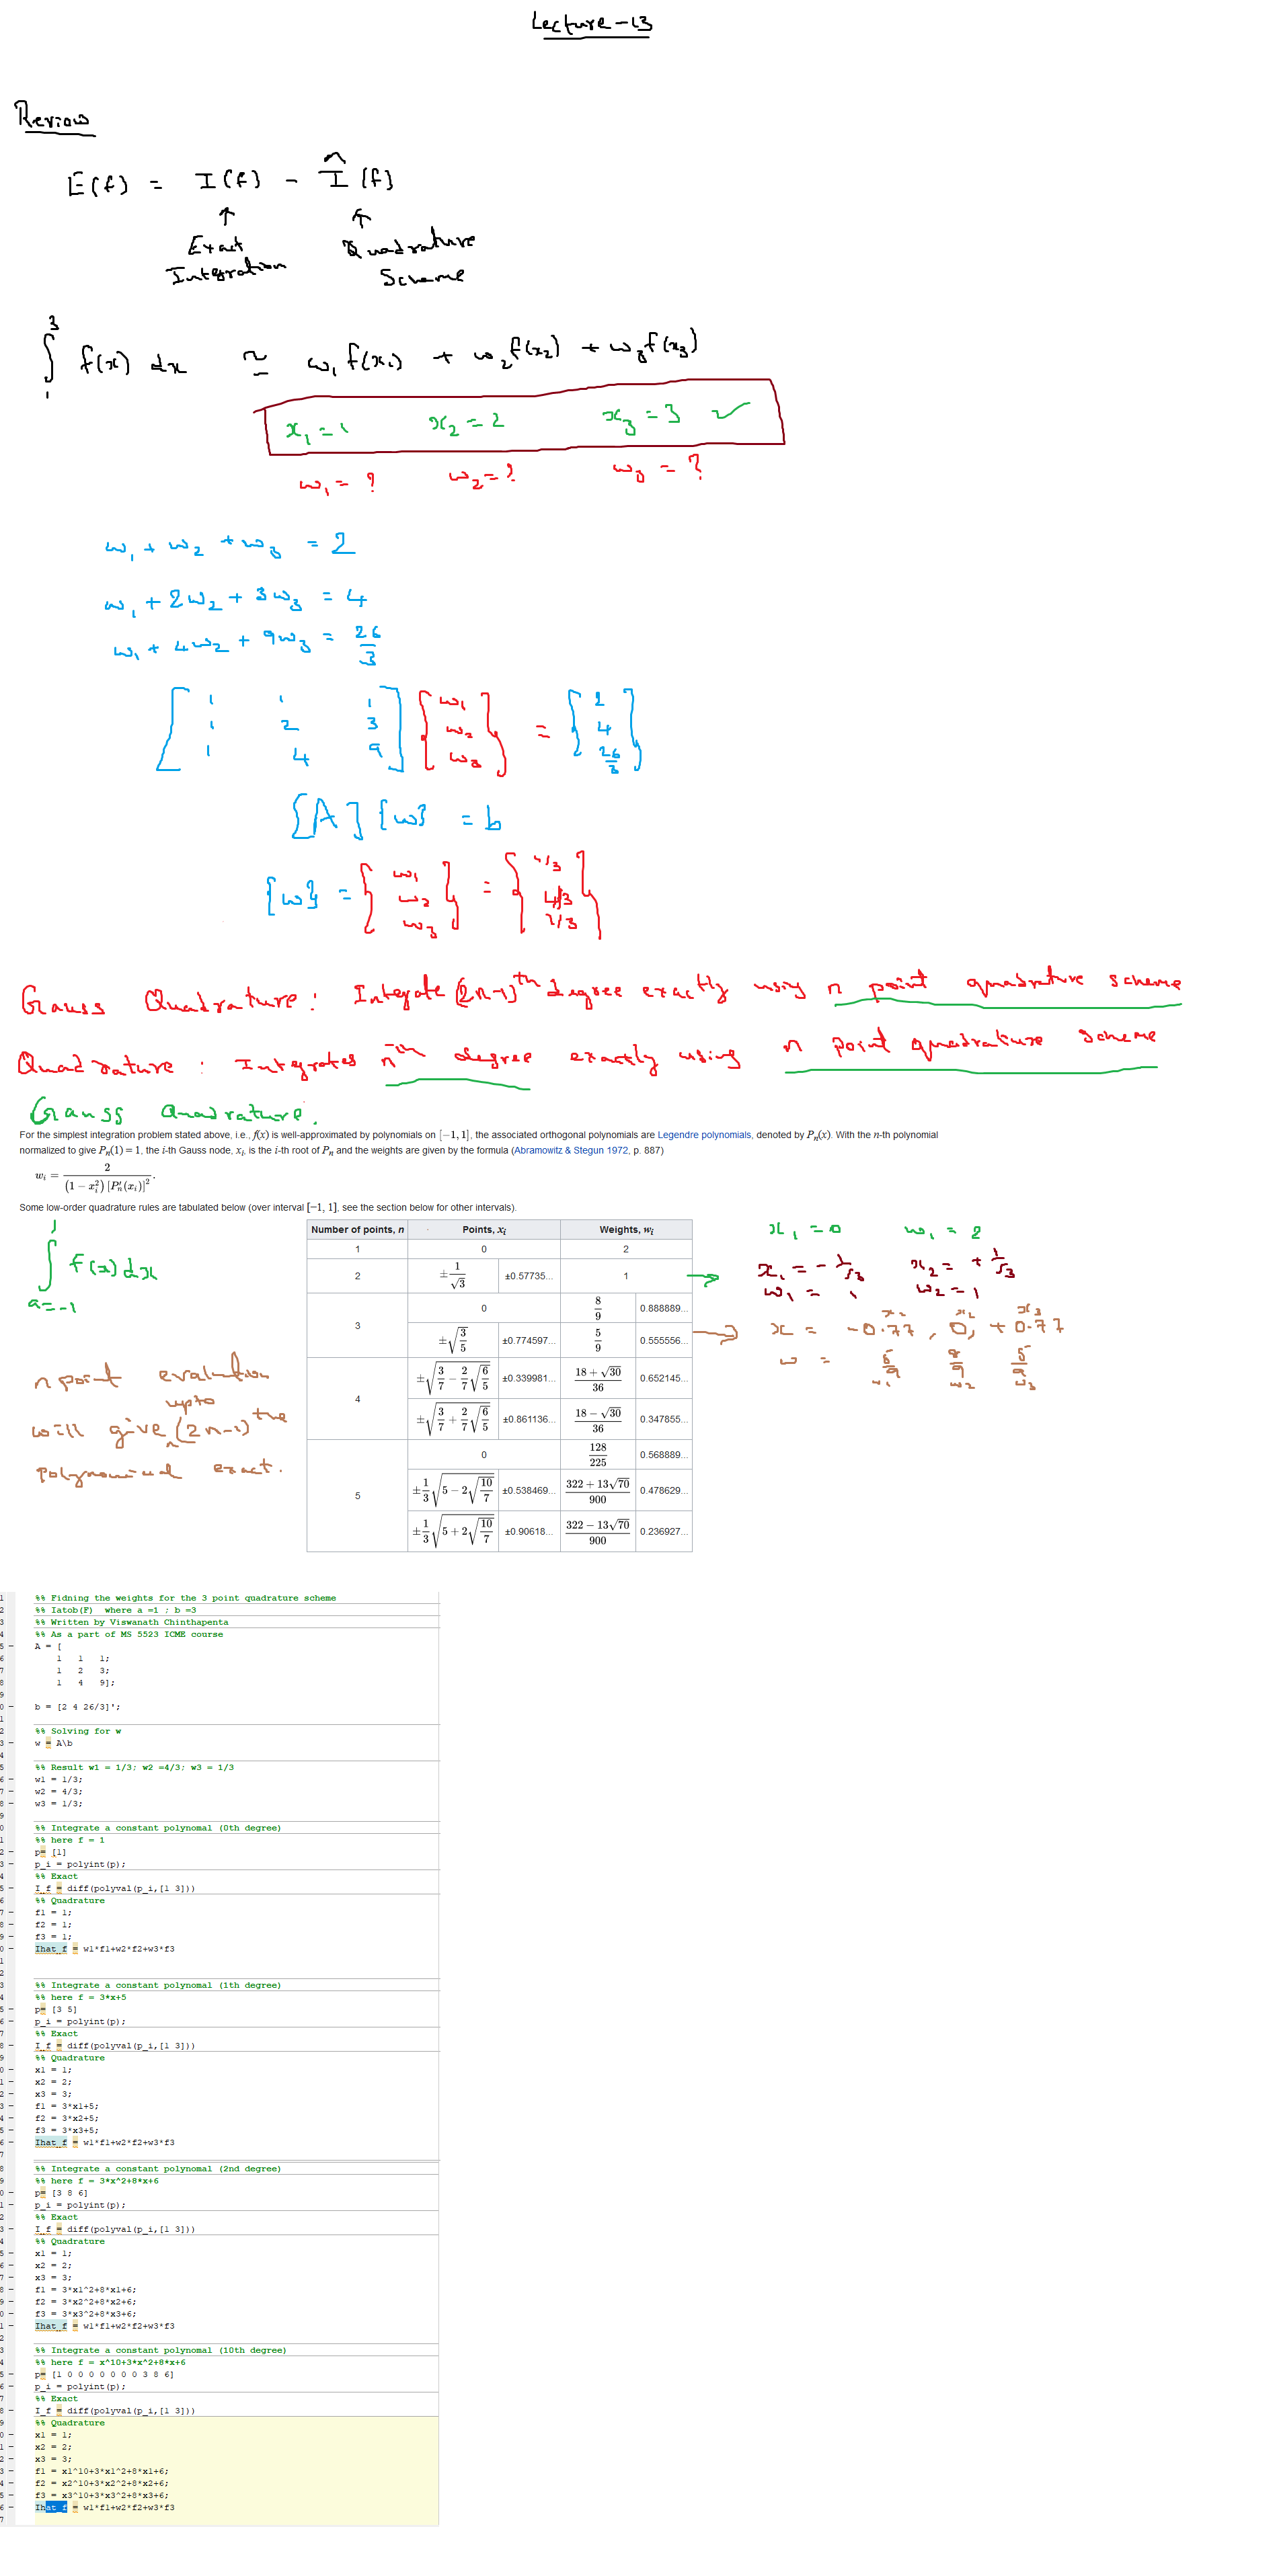 Lecture-13
Review
E(f) = I(f) - Î(f)
↑ ↑
Exact Quadrature
Integration Scheme
∫₁³ f(x) dx ≃ w₁f(x₁) + w₂f(x₂) + w₃f(x₃)
x₁ = 1 x₂ = 2 x₃ = 3 ✓
w₁ = ? w₂ = ? w₃ = ?
w₁ + w₂ + w₃ = 2
w₁ + 2w₂ + 3w₃ = 4
w₁ + 4w₂ + 9w₃ = 26/3
[1 1 1; 1 2 3; 1 4 9] {w₁; w₂; w₃} = {2; 4; 26/3}
[A] {w} = b
{w} = {w₁; w₂; w₃} = {1/3; 4/3; 1/3}
Gauss Quadrature: Integrate (2n-1)ᵗʰ degree exactly using n point quadrature scheme
Quadrature: Integrates nᵗʰ degree exactly using n point quadrature scheme
Gauss Quadrature.
For the simplest integration problem stated above, i.e., f(x) is well-approximated by polynomials on [−1, 1], the associated orthogonal polynomials are Legendre polynomials, denoted by Pₙ(x). With the n-th polynomial
normalized to give Pₙ(1) = 1, the i-th Gauss node, xᵢ, is the i-th root of Pₙ and the weights are given by the formula (Abramowitz & Stegun 1972, p. 887)
wᵢ = 2 / ((1 − xᵢ²) [P′ₙ(xᵢ)]²).
Some low-order quadrature rules are tabulated below (over interval [−1, 1], see the section below for other intervals).
∫ f(x) dx
1
a=-1
n point evalution
will give upto (2n-1)the
polynomial exact.
Number of points, n Points, xᵢ Weights, wᵢ
1 0 2
2 ±1/√3 ±0.57735... 1
3 0 8/9 0.888889...
±√(3/5) ±0.774597... 5/9 0.555556...
4 ±√(3/7 − 2/7√(6/5)) ±0.339981... (18 + √30)/36 0.652145...
±√(3/7 + 2/7√(6/5)) ±0.861136... (18 − √30)/36 0.347855...
5 0 128/225 0.568889...
±1/3√(5 − 2√(10/7)) ±0.538469... (322 + 13√70)/900 0.478629...
±1/3√(5 + 2√(10/7)) ±0.90618... (322 − 13√70)/900 0.236927...
x₁ = 0 w₁ = 2
x₁ = -1/√3 x₂ = +1/√3
w₁ = 1 w₂ = 1
x₁ x₂ x₃
x = -0.77, 0, +0.77
w = 5/9 8/9 5/9
w₁ w₂ w₃
%% Fidning the weights for the 3 point quadrature scheme
%% Iatob(F) where a =1 ; b =3
%% Written by Viswanath Chinthapenta
%% As a part of MS 5523 ICME course
A = [
1 1 1;
1 2 3;
1 4 9];
b = [2 4 26/3]';
%% Solving for w
w = A\b
%% Result w1 = 1/3; w2 =4/3; w3 = 1/3
w1 = 1/3;
w2 = 4/3;
w3 = 1/3;
%% Integrate a constant polynomal (0th degree)
%% here f = 1
p= [1]
p_i = polyint(p);
%% Exact
I_f = diff(polyval(p_i,[1 3]))
%% Quadrature
f1 = 1;
f2 = 1;
f3 = 1;
Ihat_f = w1*f1+w2*f2+w3*f3
%% Integrate a constant polynomal (1th degree)
%% here f = 3*x+5
p= [3 5]
p_i = polyint(p);
%% Exact
I_f = diff(polyval(p_i,[1 3]))
%% Quadrature
x1 = 1;
x2 = 2;
x3 = 3;
f1 = 3*x1+5;
f2 = 3*x2+5;
f3 = 3*x3+5;
Ihat_f = w1*f1+w2*f2+w3*f3
%% Integrate a constant polynomal (2nd degree)
%% here f = 3*x^2+8*x+6
p= [3 8 6]
p_i = polyint(p);
%% Exact
I_f = diff(polyval(p_i,[1 3]))
%% Quadrature
x1 = 1;
x2 = 2;
x3 = 3;
f1 = 3*x1^2+8*x1+6;
f2 = 3*x2^2+8*x2+6;
f3 = 3*x3^2+8*x3+6;
Ihat_f = w1*f1+w2*f2+w3*f3
%% Integrate a constant polynomal (10th degree)
%% here f = x^10+3*x^2+8*x+6
p= [1 0 0 0 0 0 0 0 3 8 6]
p_i = polyint(p);
%% Exact
I_f = diff(polyval(p_i,[1 3]))
%% Quadrature
x1 = 1;
x2 = 2;
x3 = 3;
f1 = x1^10+3*x1^2+8*x1+6;
f2 = x2^10+3*x2^2+8*x2+6;
f3 = x3^10+3*x3^2+8*x3+6;
Ihat_f = w1*f1+w2*f2+w3*f3